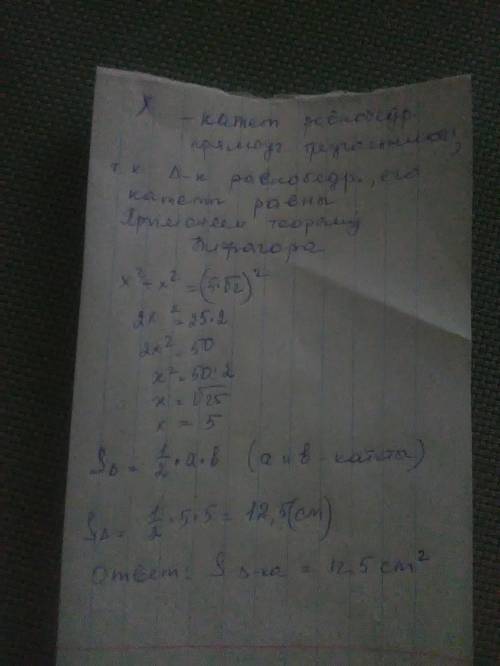 x - катет равнобедр.
прямоуг. треугольника;
т.к. Δ-к равнобедр., его
катеты равны
Применяем теорему
Пифагора
x² + x² = (5·√2)²
2x² = 25·2
2x² = 50
x² = 50:2
x = √25
x = 5
SΔ = 1/2 · a · b (a и b - катеты)
SΔ = 1/2 · 5 · 5 = 12,5 (см)
Ответ: S Δ-ка = 12,5 см²